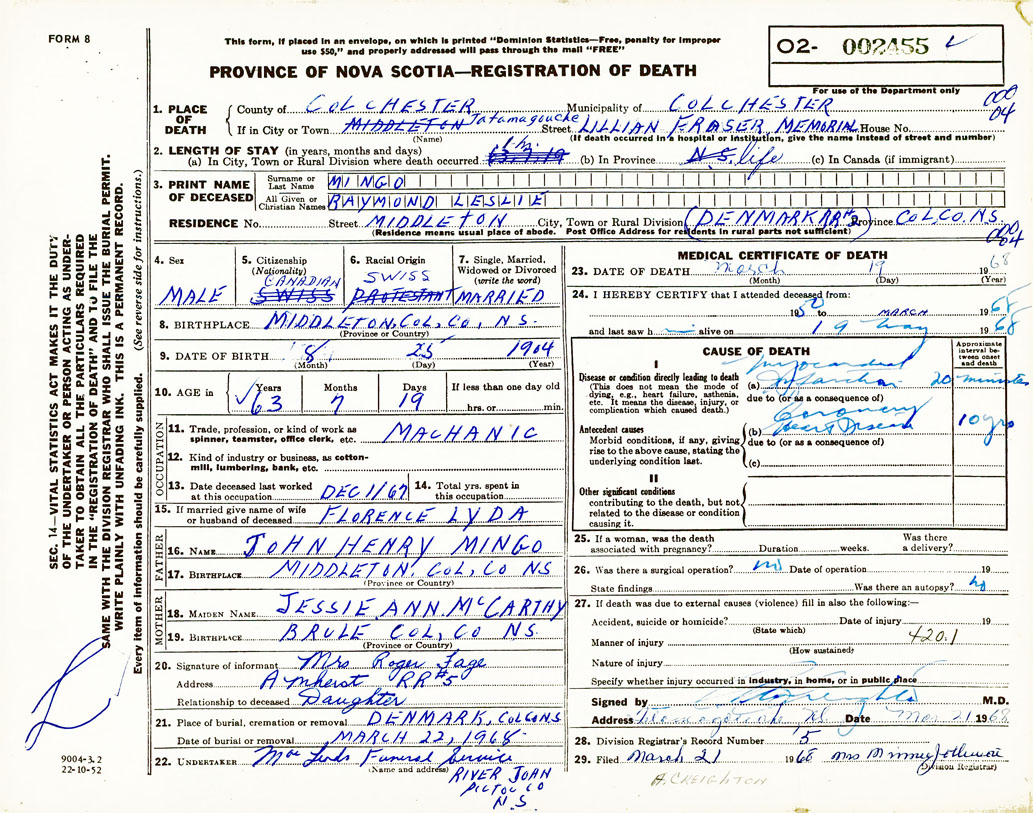 FORM 8
This form, if placed in an envelope, on which is printed "Dominion Statistics—Free, penalty for improper
use $50," and properly addressed will pass through the mail "FREE"
O2- 002455
PROVINCE OF NOVA SCOTIA—REGISTRATION OF DEATH
For use of the Department only
000
04
1. PLACE OF DEATH
County of COLCHESTER Municipality of COLCHESTER
If in City or Town MIDDLETON Tatamagouche Street LILLIAN FRASER MEMORIAL House No.
(Name) (If death occurred in a hospital or institution, give the name instead of street and number)
2. LENGTH OF STAY (in years, months and days)
(a) In City, Town or Rural Division where death occurred (b) In Province N.S. life (c) In Canada (if immigrant)
3. PRINT NAME OF DECEASED
Surname or Last Name MINGO
All Given or Christian Names RAYMOND LESLIE
RESIDENCE No. Street MIDDLETON City, Town or Rural Division (DENMARK RR#2) Province COL CO. N.S.
(Residence means usual place of abode. Post Office Address for residents in rural parts not sufficient)
000
04
4. Sex
MALE
5. Citizenship
(Nationality)
CANADIAN
SWISS
6. Racial Origin
SWISS
PROTESTANT
7. Single, Married, Widowed or Divorced
(write the word)
MARRIED
8. BIRTHPLACE MIDDLETON, COL, CO, N S.
(Province or Country)
9. DATE OF BIRTH 8 25 1904
(Month) (Day) (Year)
10. AGE in
Years Months Days If less than one day old
63 7 19 hrs. or min.
OCCUPATION
11. Trade, profession, or kind of work as
spinner, teamster, office clerk, etc. MACHANIC
12. Kind of industry or business, as cotton-
mill, lumbering, bank, etc.
13. Date deceased last worked
at this occupation DEC 1/67
14. Total yrs. spent in
this occupation
15. If married give name of wife
or husband of deceased FLORENCE LYDA
FATHER
16. NAME JOHN HENRY MINGO
17. BIRTHPLACE MIDDLETON, COL, CO NS
(Province or Country)
MOTHER
18. MAIDEN NAME JESSIE ANN McCARTHY
19. BIRTHPLACE BRULE COL, CO NS.
(Province or Country)
20. Signature of informant Mrs Roger Fage
Address Amherst RR#5
Relationship to deceased Daughter
21. Place of burial, cremation or removal DENMARK, COL CO NS
Date of burial or removal MARCH 22, 1968
22. UNDERTAKER Funeral Service
(Name and address)
RIVER JOHN
PICTOU CO
N.S.
MEDICAL CERTIFICATE OF DEATH
23. DATE OF DEATH March 19 1968
(Month) (Day) (Year)
24. I HEREBY CERTIFY that I attended deceased from:
1950 to MARCH 1968
and last saw h im alive on 19 1968
CAUSE OF DEATH
Approximate interval between onset and death
I
Disease or condition directly leading to death
(This does not mean the mode of
dying, e.g., heart failure, asthenia,
etc. It means the disease, injury, or
complication which caused death.)
(a) Myocardial Infarction 20 minutes
due to (or as a consequence of)
Antecedent causes
Morbid conditions, if any, giving
rise to the above cause, stating the
underlying condition last.
(b) Coronary Heart Disease 10 yrs
due to (or as a consequence of)
(c)
II
Other significant conditions
contributing to the death, but not
related to the disease or condition
causing it.
25. If a woman, was the death
associated with pregnancy? Duration weeks.
Was there
a delivery?
26. Was there a surgical operation? no Date of operation 19
State findings Was there an autopsy? no
27. If death was due to external causes (violence) fill in also the following:—
Accident, suicide or homicide? Date of injury 19
(State which)
Manner of injury 420.1
(How sustained)
Nature of injury
Specify whether injury occurred in industry, in home, or in public place
Signed by M.D.
Address Tatamagouche NS Date Mar 21 1968
28. Division Registrar's Record Number 5
29. Filed March 21 1968 Mrs
(Division Registrar)
A. CREIGHTON
SEC. 14—VITAL STATISTICS ACT MAKES IT THE DUTY
OF THE UNDERTAKER OR PERSON ACTING AS UNDER-
TAKER TO OBTAIN ALL THE PARTICULARS REQUIRED
IN THE "REGISTRATION OF DEATH" AND TO FILE THE
SAME WITH THE DIVISION REGISTRAR WHO SHALL ISSUE THE BURIAL PERMIT.
WRITE PLAINLY WITH UNFADING INK. THIS IS A PERMANENT RECORD.
Every item of information should be carefully supplied. (See reverse side for instructions.)
9004-3.2
22-10-52